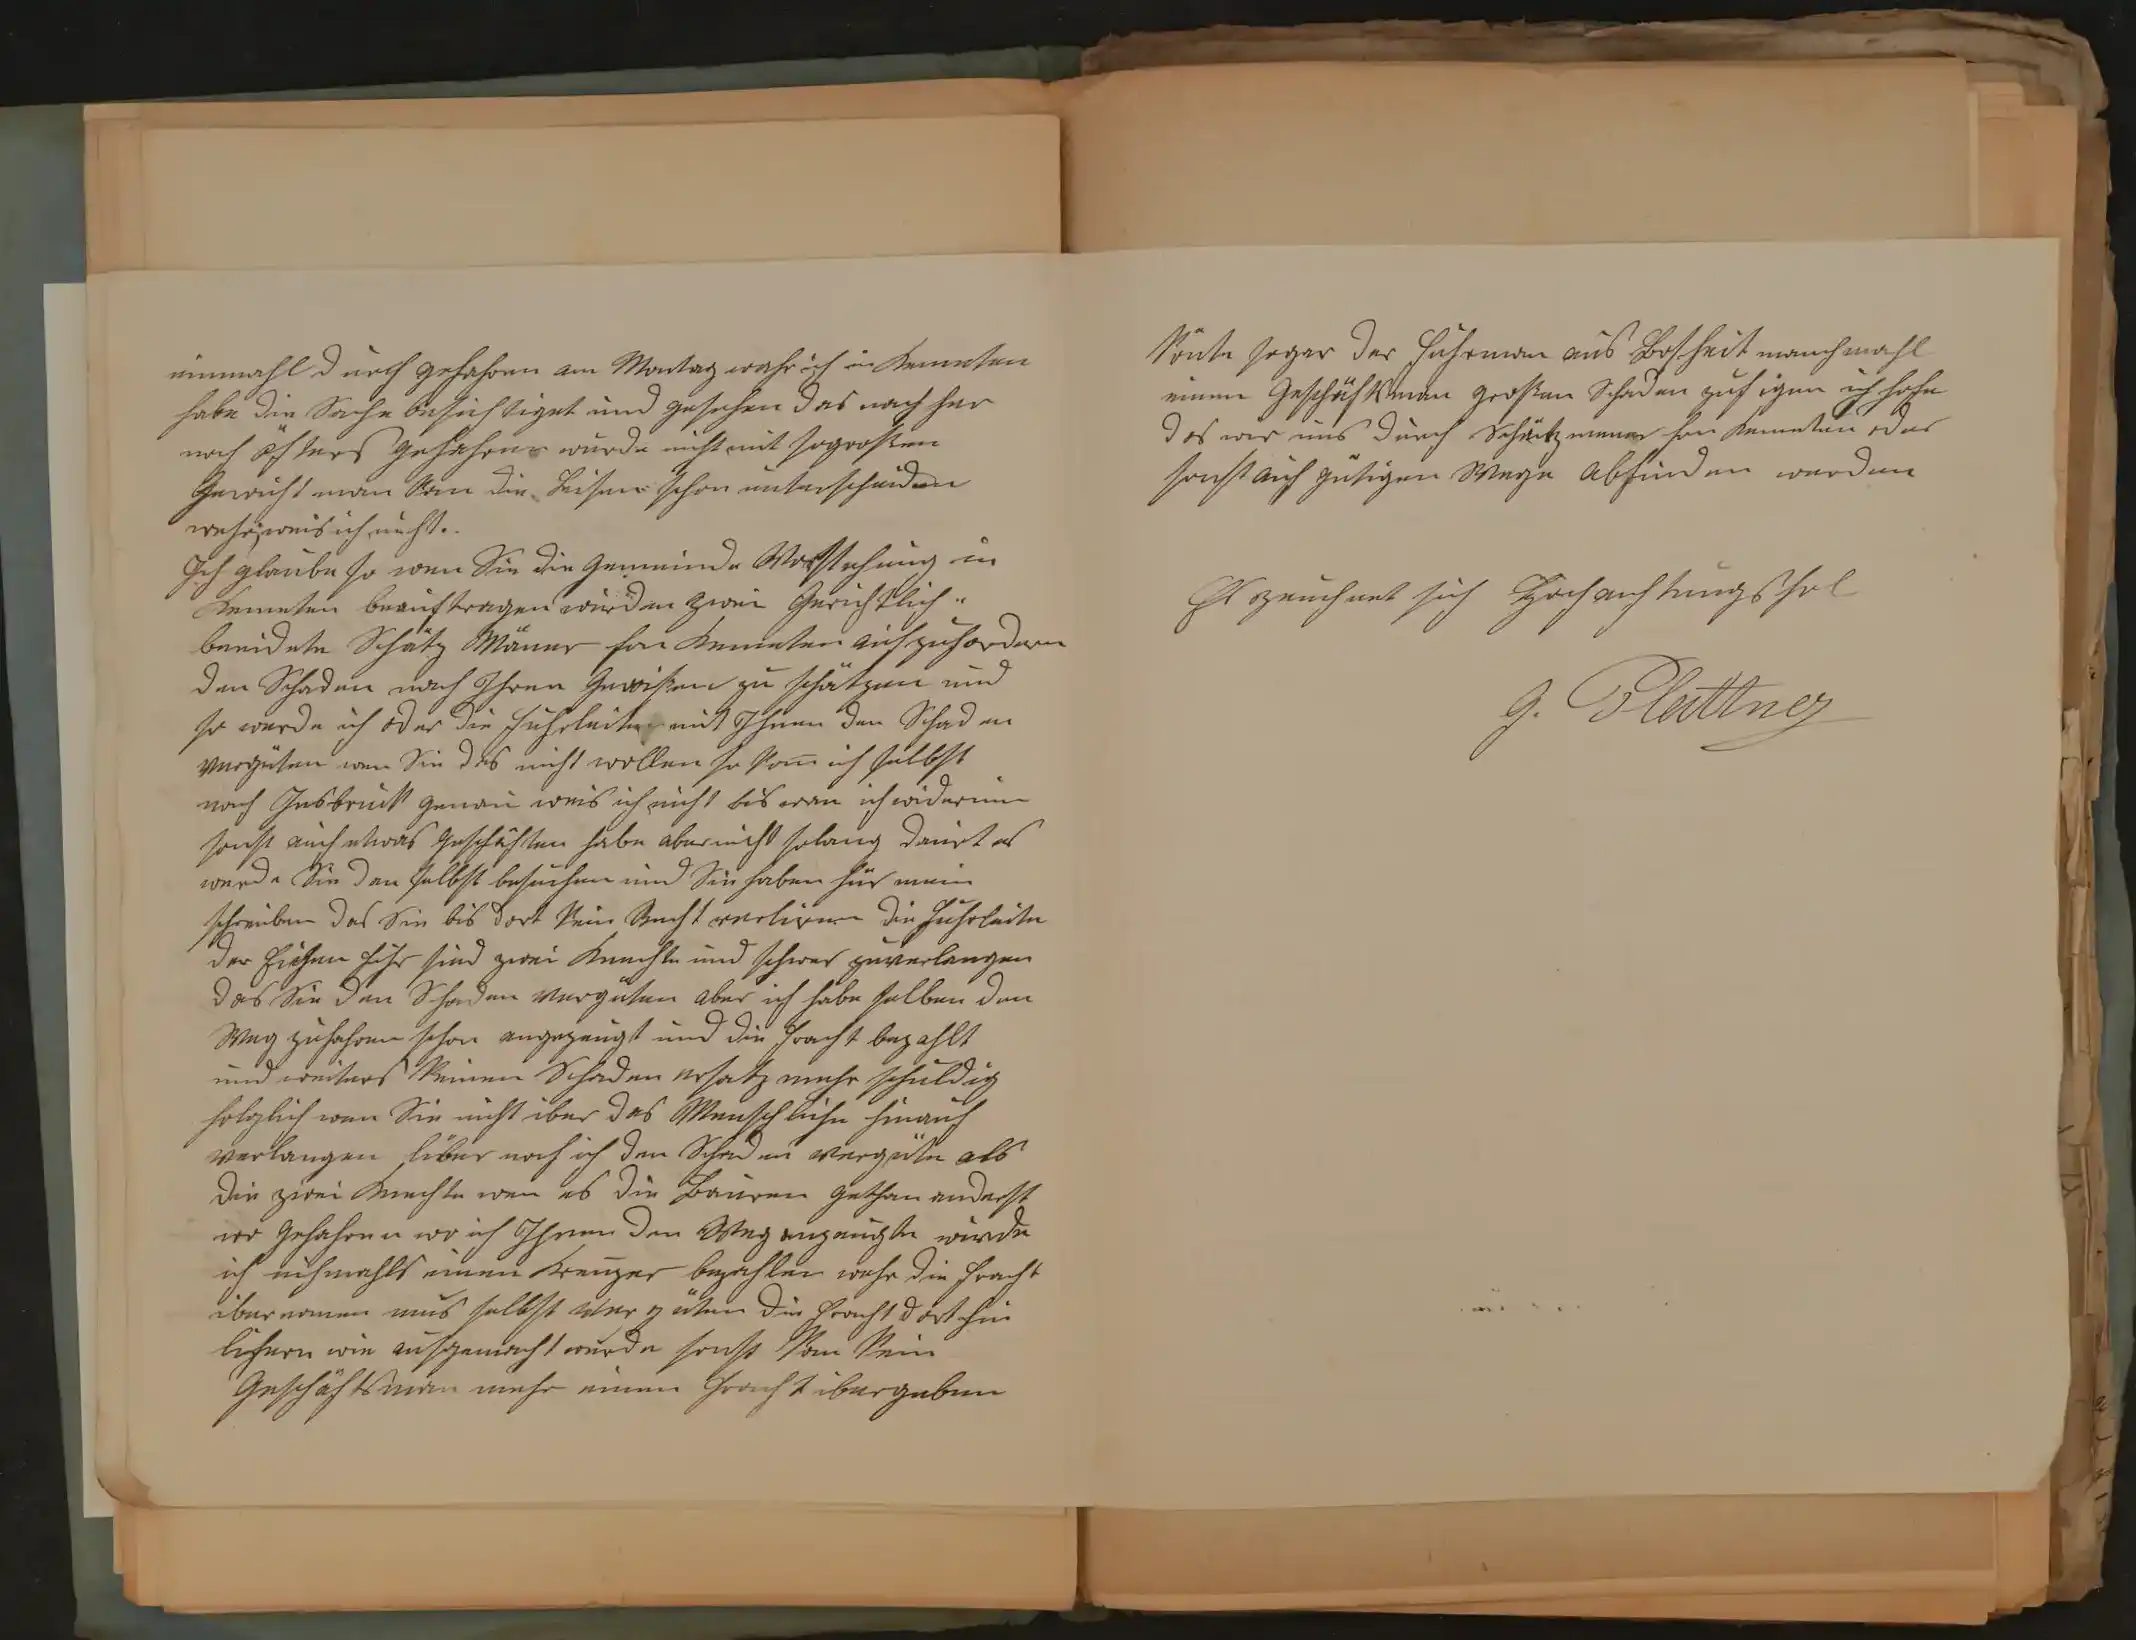 einmahl durch gefahren am Montag wahr ich in Kemeten
habe die Sache besichtiget und gesehen das nach her
noch öfters gefahren wurde nicht mit sogroßen
Gewicht man kan die schon unterscheiden
wehr weis ich nicht.
Ich glaube so wen Sie die Gemeinde Vorstehung in
Kemeten beauftragen würden zwei Gerichtlich
beeidete Schätz Mäner fon Kemeten aufzufordern
den Schaden nach Ihren Gewißen zu schätzen und
so werde ich oder die Fuhrleite mit Ihnen den Schaden
vergüten wen Sie das nicht wollen so kom ich selbst
nach Insbruck genau weis ich nicht bis wan ich widerum
sonst auch etwas Geschäften habe aber nicht solang dauert es
werde Sie dan selbst besuchen und Sie haben für mein
schreiben das Sie bis dort kein Recht verliren die Fuhrleite
der fuhr sind zwei Knechte und schwer zuverlangen
das Sie den Schaden vergüten aber ich habe selben den
Weg zufahren schon angezeugt und die Fracht bezahlt
und weiters keinen Schaden ersatz mehr schuldig
folglich wen Sie nicht iber das Menschliche hinauf
verlangen liber noch ich den Schaden vergüte als
die zwei Knechte wen es die Bauren gethan anderst
wo gefahren wo ich Ihnen den Weg anzeugte würde
ich nihmahls einen Kreuzer bezahlen wehr die Fracht
ibernomen mus selbst vergüten die Fracht dorthin
lifern wie ausgemacht wurde sonst kan kein
Geschäftsman mehr einen Fracht ibergeben
könte sogar der Fuhrman aus Bosheit manchmahl
einen Geschäftsman großen Schaden zufigen ich hofe
das wir uns durch Schätzmener fon Kemeten oder
sonst auf gütigen Wege abfinden werden
Es zeuchnet sich Hochachtungsfol
J. Plattner